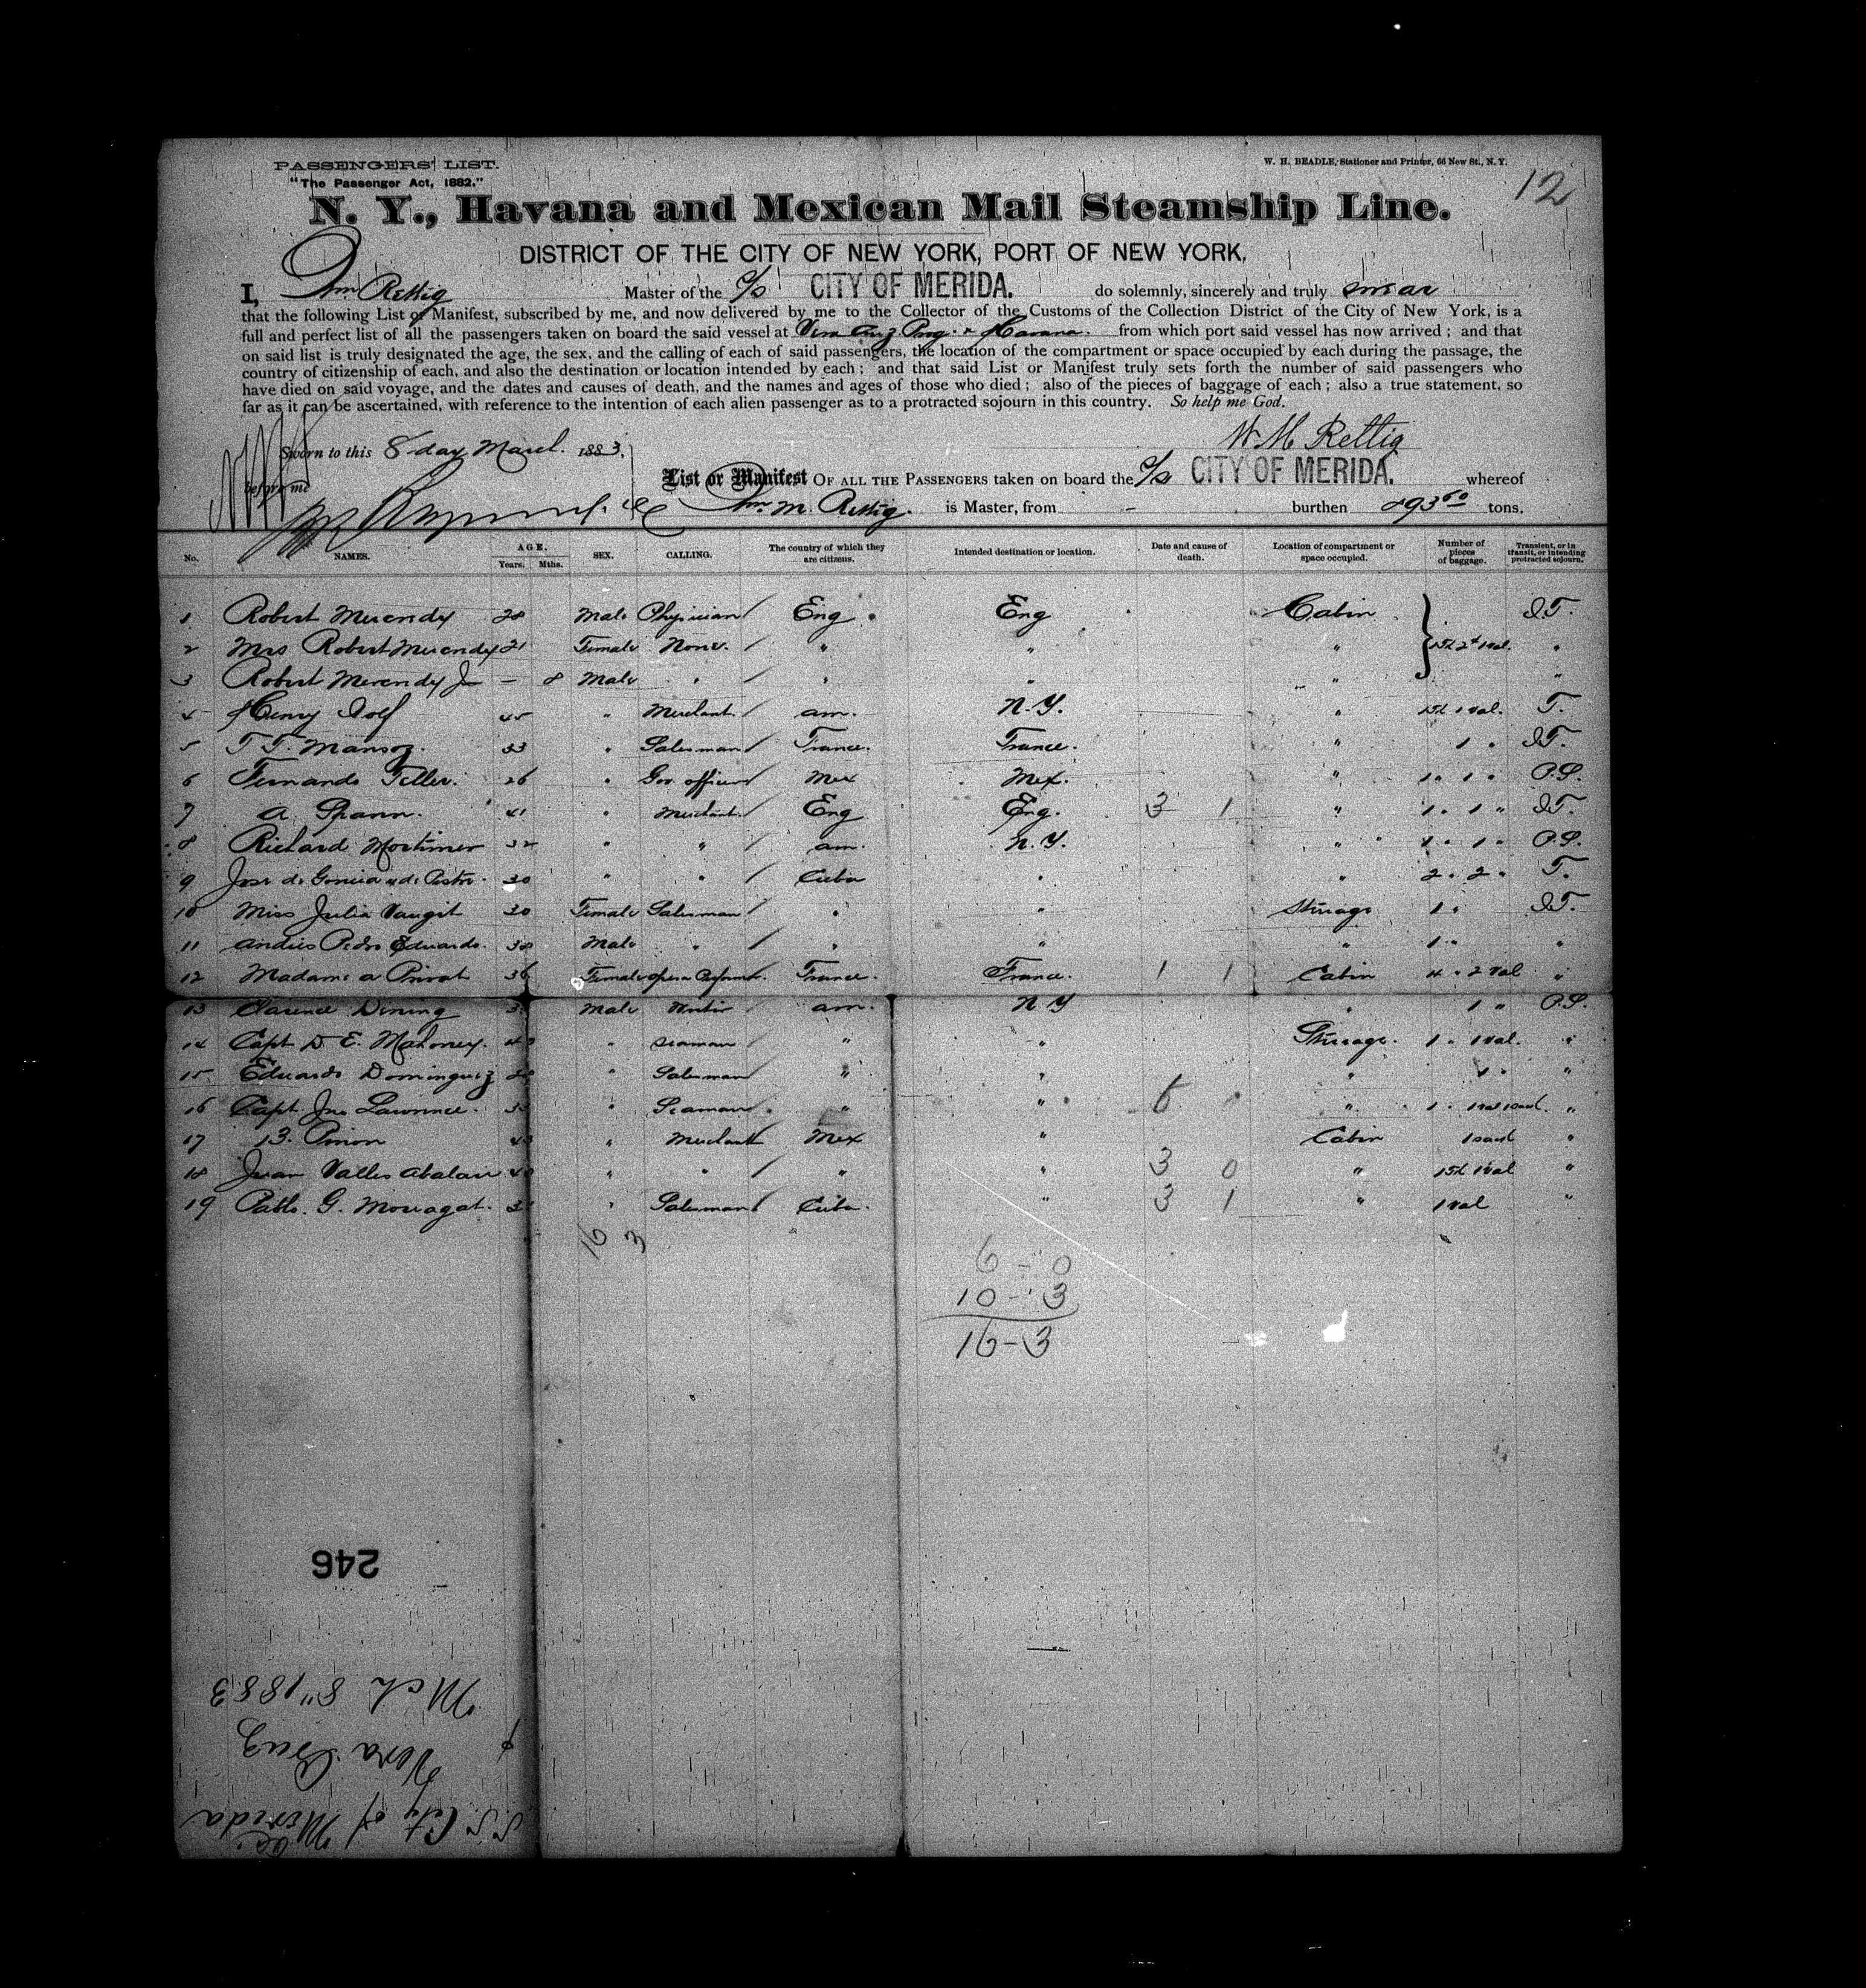 PASSENGERS' LIST.
"The Passenger Act, 1882."
W. H. BEADLE, Stationer and Printer, 66 New St., N. Y.
12
N. Y., Havana and Mexican Mail Steamship Line.
DISTRICT OF THE CITY OF NEW YORK, PORT OF NEW YORK,
I, Wm Rettig Master of the S/S CITY OF MERIDA. do solemnly, sincerely and truly swear
that the following List or Manifest, subscribed by me, and now delivered by me to the Collector of the Customs of the Collection District of the City of New York, is a
full and perfect list of all the passengers taken on board the said vessel at Vera Cruz Prog. & Havana. from which port said vessel has now arrived; and that
on said list is truly designated the age, the sex, and the calling of each of said passengers, the location of the compartment or space occupied by each during the passage, the
country of citizenship of each, and also the destination or location intended by each; and that said List or Manifest truly sets forth the number of said passengers who
have died on said voyage, and the dates and causes of death, and the names and ages of those who died; also of the pieces of baggage of each; also a true statement, so
far as it can be ascertained, with reference to the intention of each alien passenger as to a protracted sojourn in this country. So help me God.
W. M Rettig
Sworn to this 8 day March. 1883,
before me
List or Manifest OF ALL THE PASSENGERS taken on board the S/S CITY OF MERIDA. whereof
Wm. M. Rettig. is Master, from - burthen 1493 60 tons.
No. NAMES. AGE. Years. Mths. SEX. CALLING. The country of which they are citizens. Intended destination or location. Date and cause of death. Location of compartment or space occupied. Number of pieces of baggage. Transient, or in transit, or intending protracted sojourn.
1 Robert Merendy 28 Male Physician Eng Eng Cabin I.T.
2 Mrs Robert Merendy 21 Female None. " " "
3 Robert Merendy Jr — 8 Male " " " " "
4 Henry 45 " Merchant. am. N.Y. " 1 val. T.
5 T T. 33 " Salesman France. France. " 1 " I.T.
6 Fernando Teller. 26 " Gov. officer Mex Mex. " 1 " 1 " P.S.
7 A. Spann. 41 " Merchant. Eng Eng. 3 1 " 1 " 1 " I.T.
8 Richard Mortimer 32 " " am. N.Y. " 1 " 1 " P.S.
9 Jose de 30 " " Cuba " " 2 " 2 " T.
10 Miss Julia Vaugit 30 Female Salesman " " Steerage 1 " I.T.
11 Andres Pedro Eduardo. 38 Male " " " " 1 " "
12 Madame a Privat 36 Female opera Performer. France. France. 1 1 Cabin 4 " 2 val "
13 Clarence Dining Male am. N Y " 1 " P.S.
14 Capt D. E. Mahoney. " seaman " " Steerage. 1 " 1 val. "
15 Eduardo Dominguez " Salesman " " " 1 " "
16 Capt Jno Lawrence. " Seaman. " " 6 " 1 "
17 B. Pinon " Merchant Mex " Cabin "
18 Juan Valles " " " " 3 0 " 1 val "
19 Pablo. G. " Salesman Cuba. " 3 1 " 1 val "
16 3
6 - 0
10 - 3
16 - 3
246
S.S. City of Merida
Vera Cruz
Mch 8" 1883